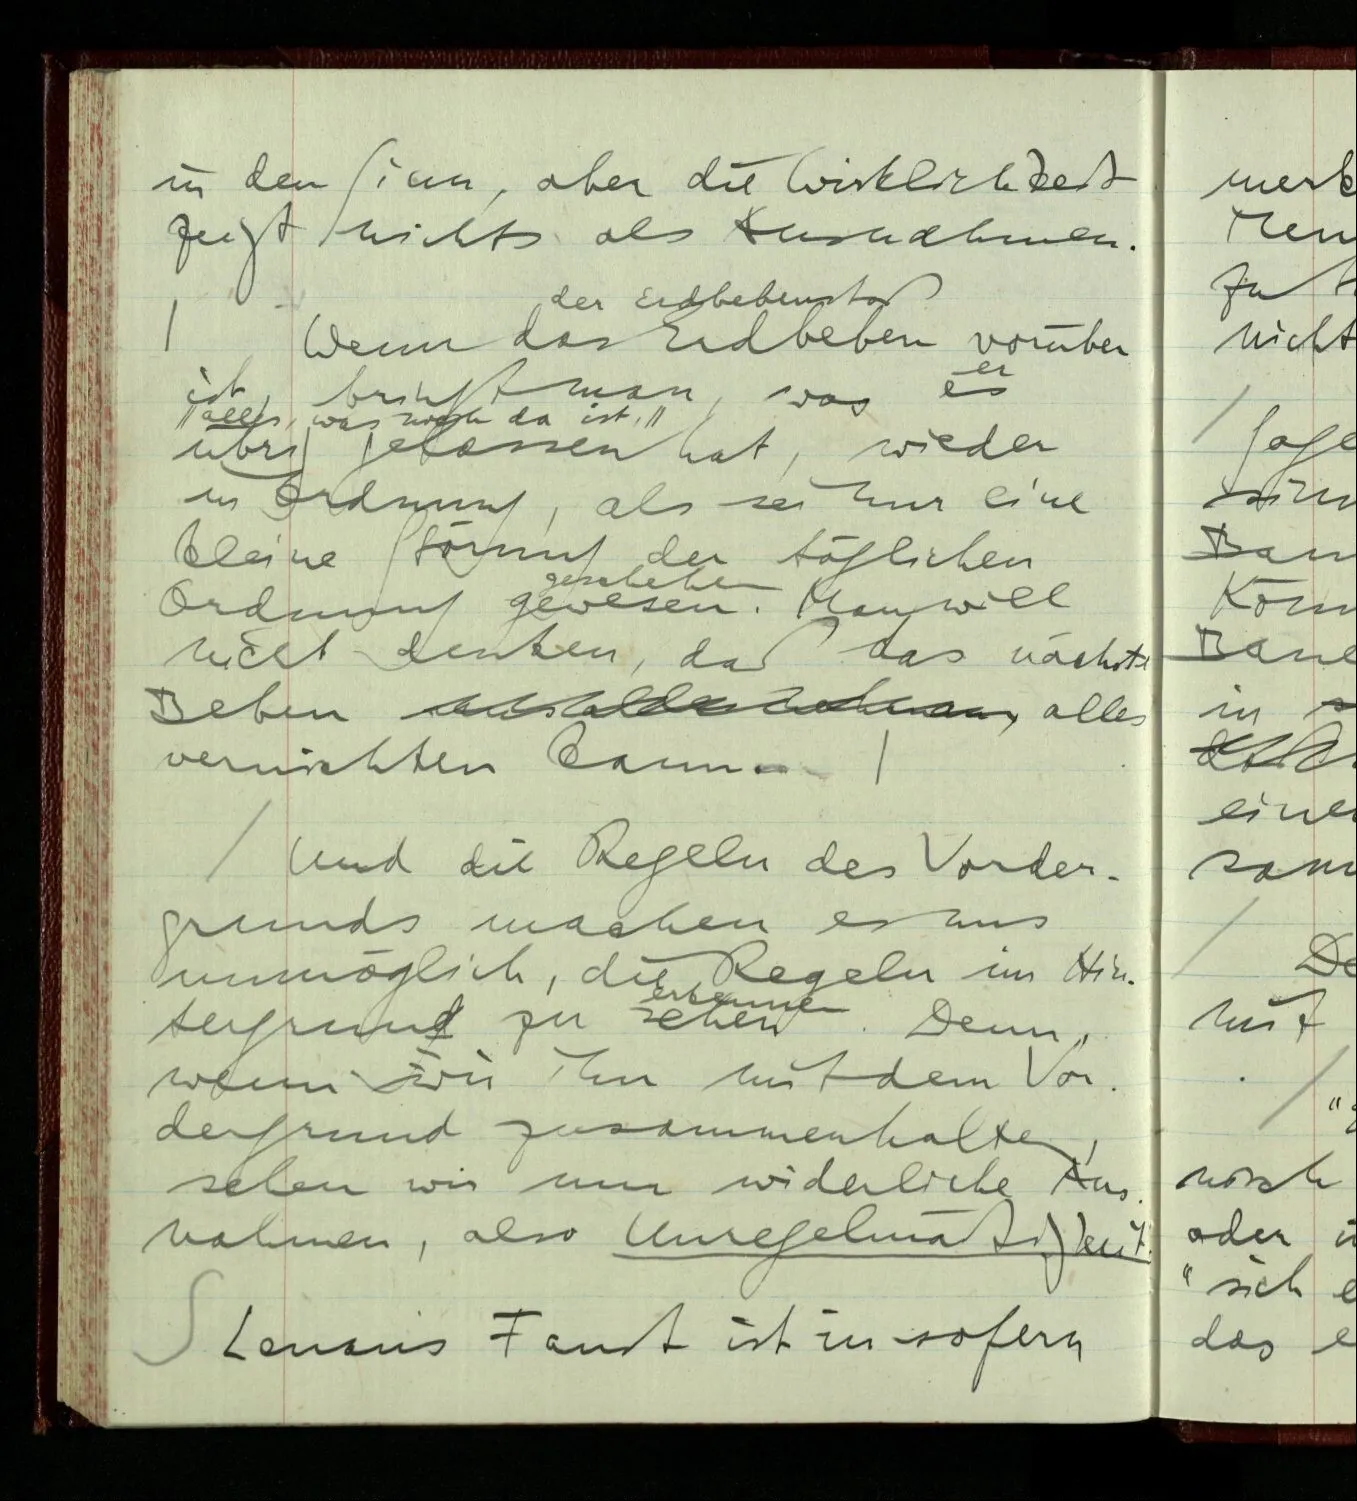 in den Sinn, aber die Wirklichkeit
zeigt nichts als Ausnahmen.
der Erdbebenstoß
| Wenn das Erdbeben vorüber
er
ist, bringt man, was es
"alles, was noch da ist,"
übrig gelassen hat, wieder
in Ordnung, als sei nur eine
kleine Störung der täglichen
geschehen
Ordnung gewesen. Man will
nicht denken, daß das nächste
Beben alles
vernichten kann. |
/ Und die Regeln des Vorder-
grunds machen es uns
unmöglich, die Regeln im Hin-
erkennen
tergrund zu sehen. Denn,
wenn wir ihn mit dem Vor-
dergrund zusammenhalten,
sehen wir nur widerliche Aus-
nahmen, also Unregelmäßigkeit.
∫ Lenaus Faust ist in sofern
merk
zu
nicht
/ Sage
Ban
in
einer
/ De
mit
/
noch
oder
"sich e
das e